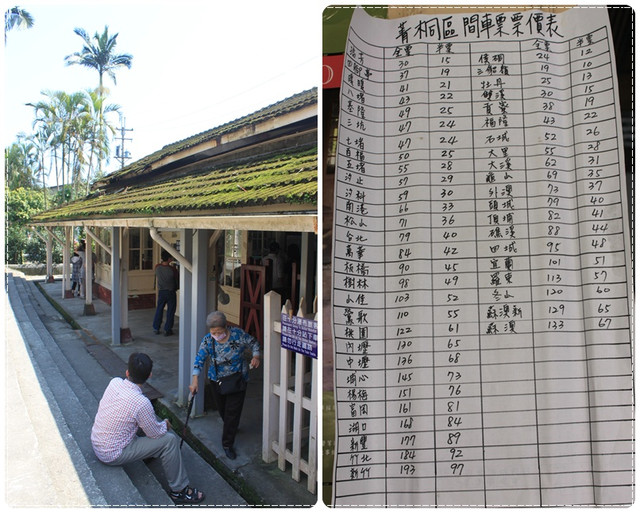 菁桐區間車票票價表
全票 半票 全票 半票
30 15 侯硐 24 12
四腳亭 37 19 三貂嶺 19 10
暖暖 41 21 牡丹 25 13
八堵 43 22 雙溪 30 15
基隆 49 25 貢寮 38 19
三坑 47 24 福隆 43 22
七堵 47 24 石城 52 26
百福 50 25 大里 55 28
五堵 55 28 大溪 62 31
汐止 57 29 龜山 69 35
汐科 59 30 外澳 73 37
南港 66 33 頭城 79 40
松山 71 36 頂埔 82 41
台北 79 40 礁溪 88 44
萬華 84 42 四城 95 48
板橋 90 45 宜蘭 101 51
樹林 98 49 羅東 113 57
山佳 103 52 冬山 120 60
鶯歌 110 55 蘇澳新 129 65
桃園 122 61 蘇澳 133 67
內壢 130 65
中壢 136 68
埔心 145 73
楊梅 151 76
富岡 161 81
湖口 168 84
新豐 177 89
竹北 184 92
新竹 193 97